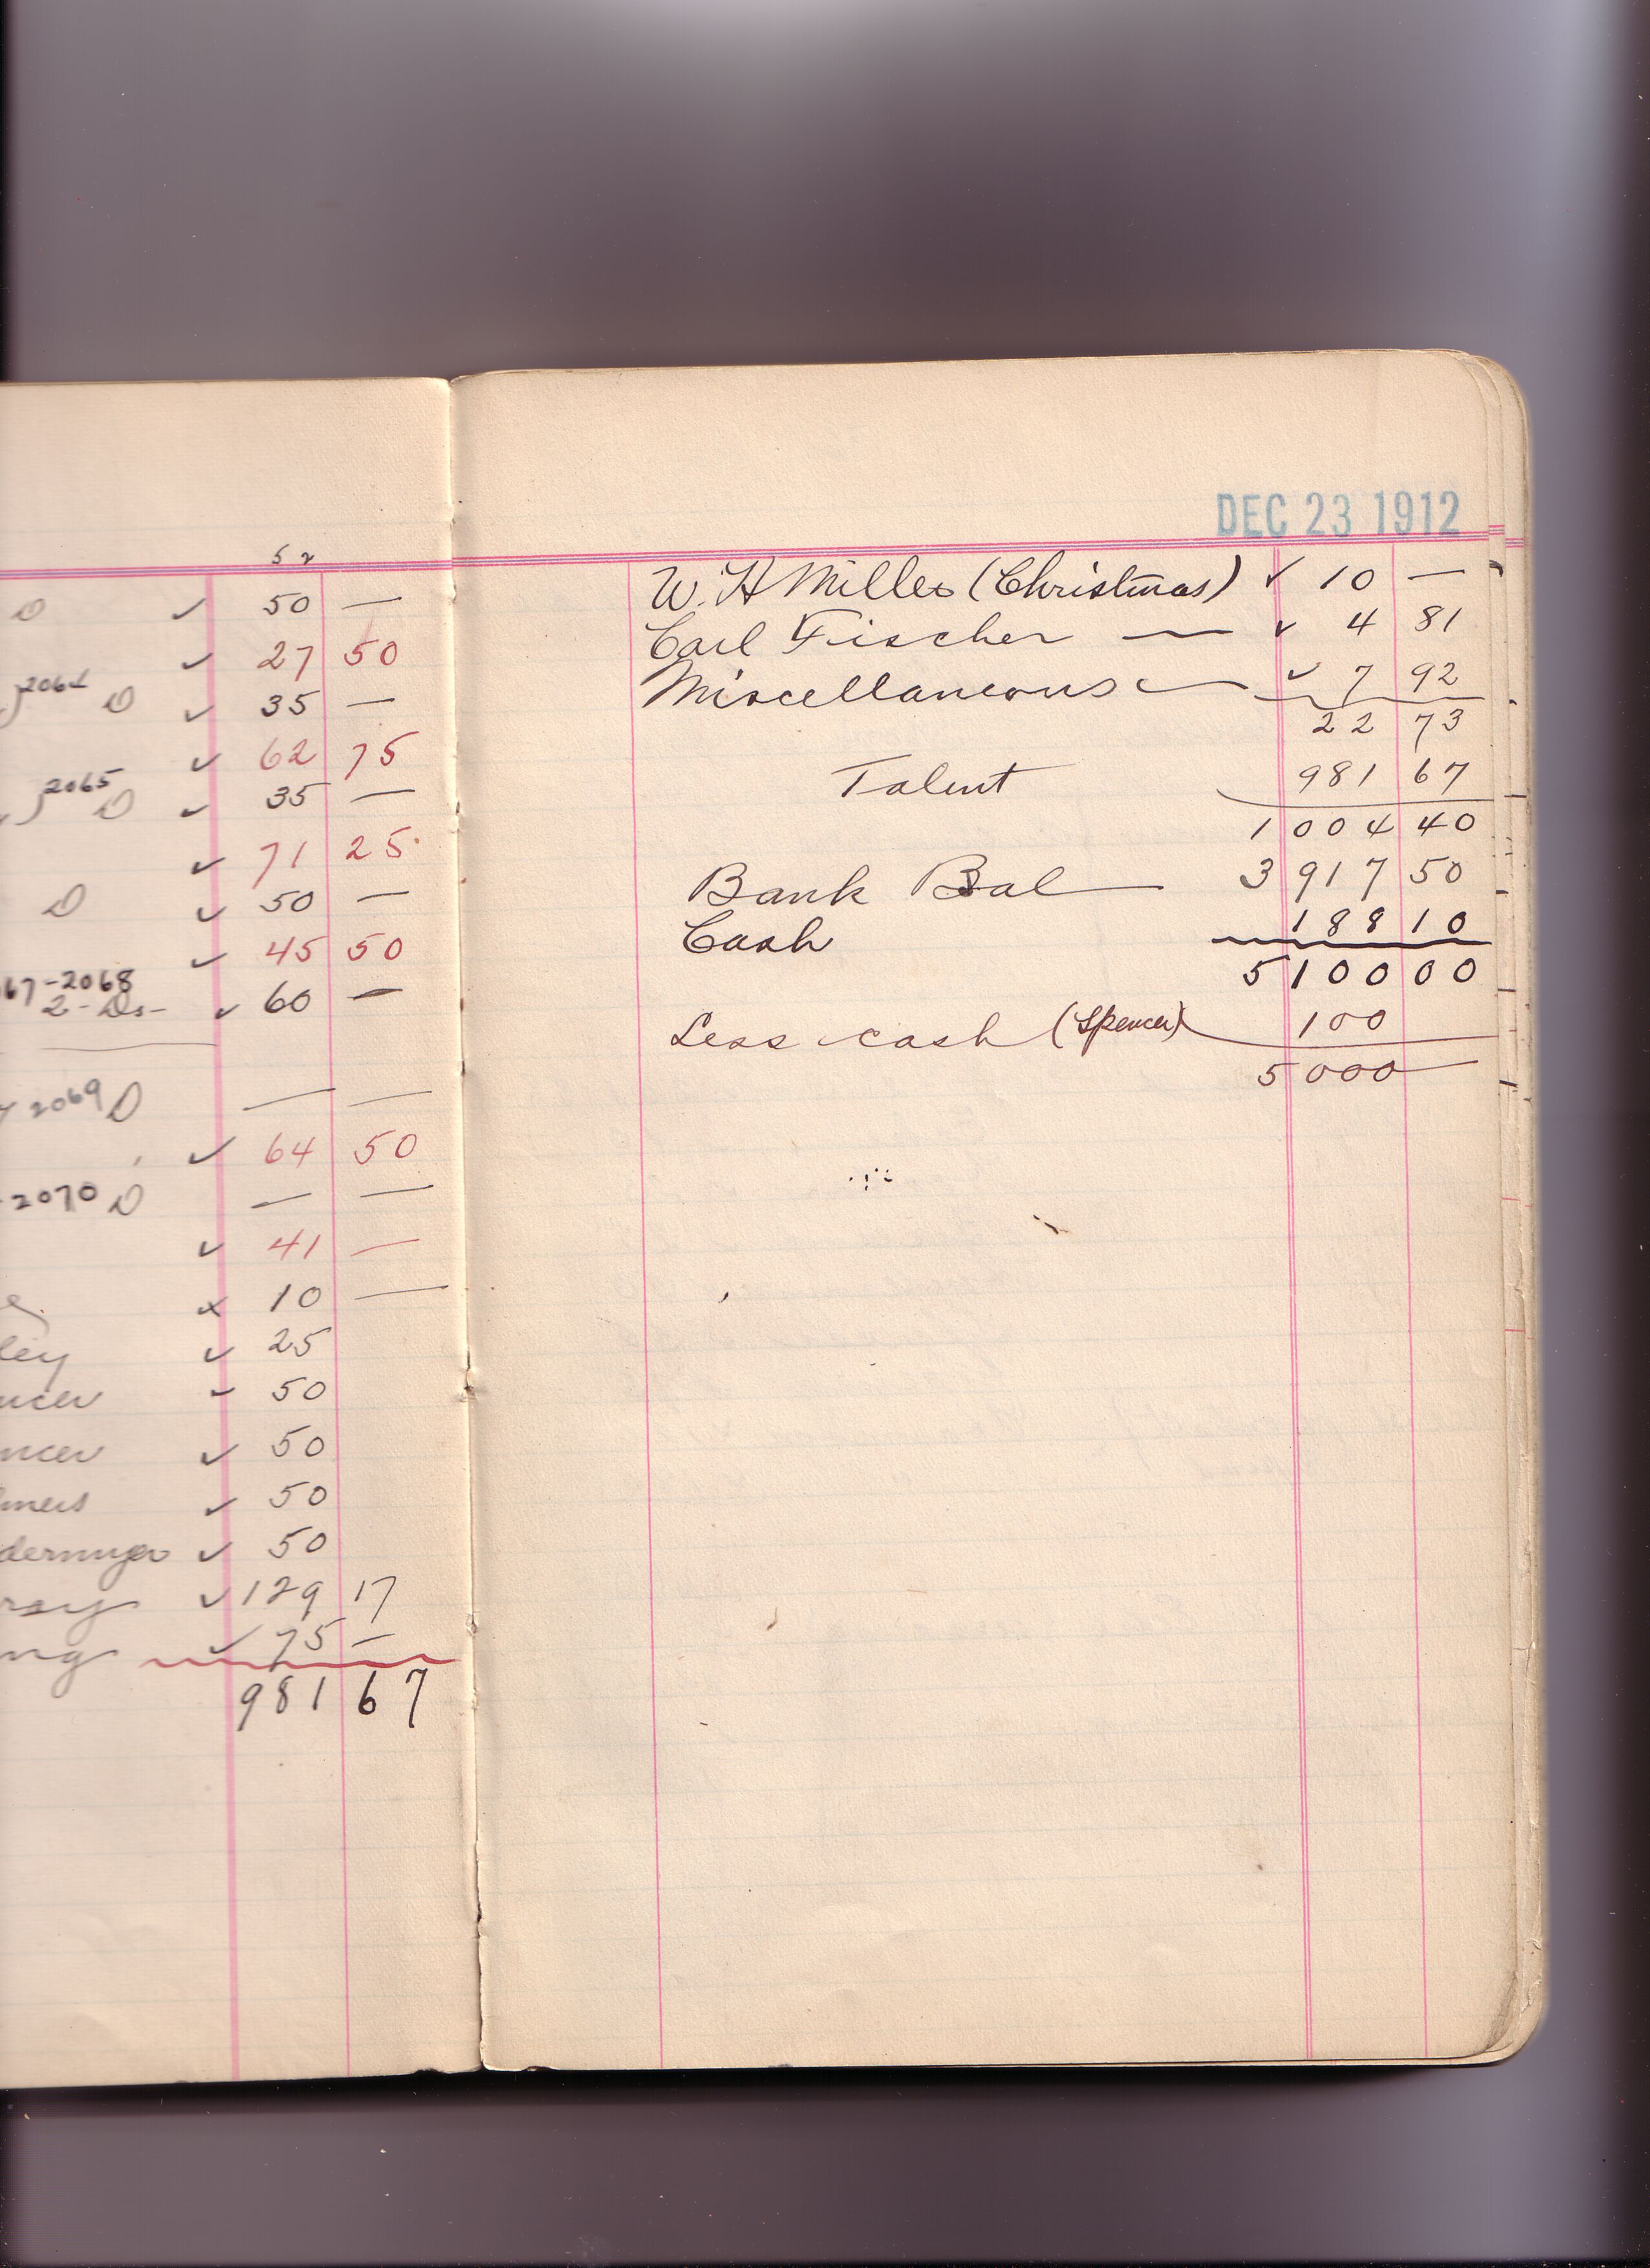 52
D ✓ 50 —
✓ 27 50
2064
D ✓ 35 —
✓ 62 75
2065
D ✓ 35 —
✓ 71 25
D ✓ 50 —
✓ 45 50
67-2068
2-Ds- ✓ 60 —
2069 D — —
✓ 64 50
2070 D — —
✓ 41 —
x 10 —
ley ✓ 25
ncer ✓ 50
ncer ✓ 50
✓ 50
✓ 50
✓ 129 17
ng ✓ 75 —
981 67
DEC 23 1912
W. H Miller (Christmas) ✓ 10 —
Carl Fischer — ✓ 4 81
Miscellaneous — ✓ 7 92
22 73
Talent 981 67
1004 40
Bank Bal — 3917 50
Cash 188 10
5100 00
Less cash (Spencer) 100
5000 —